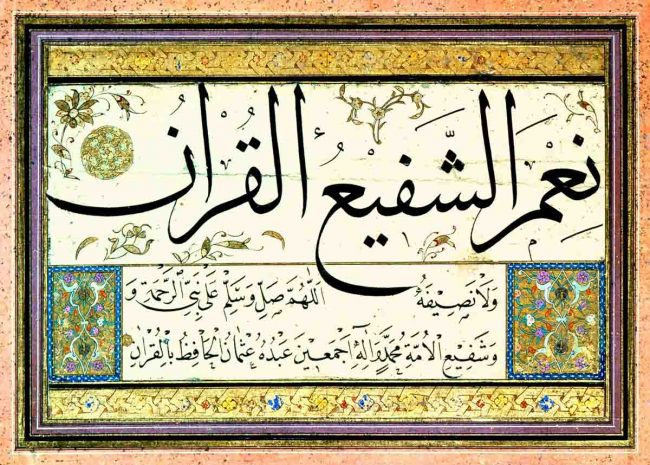 نِعْمَ الشَّفِيعُ القُرْآنُ
وَلَا نَصِيفَهُ اَللّٰهُمَّ صَلِّ وَسَلِّمْ عَلٰى نَبِيِّ الرَّحْمَةِ وَ
وَشَفِيعِ الْاُمَّةِ مُحَمَّدٍ وَاٰلِهِ اَجْمَعِينَ عَبْدُهُ عُثْمَانُ الْحَافِظُ بِالْقُرْاٰنِ